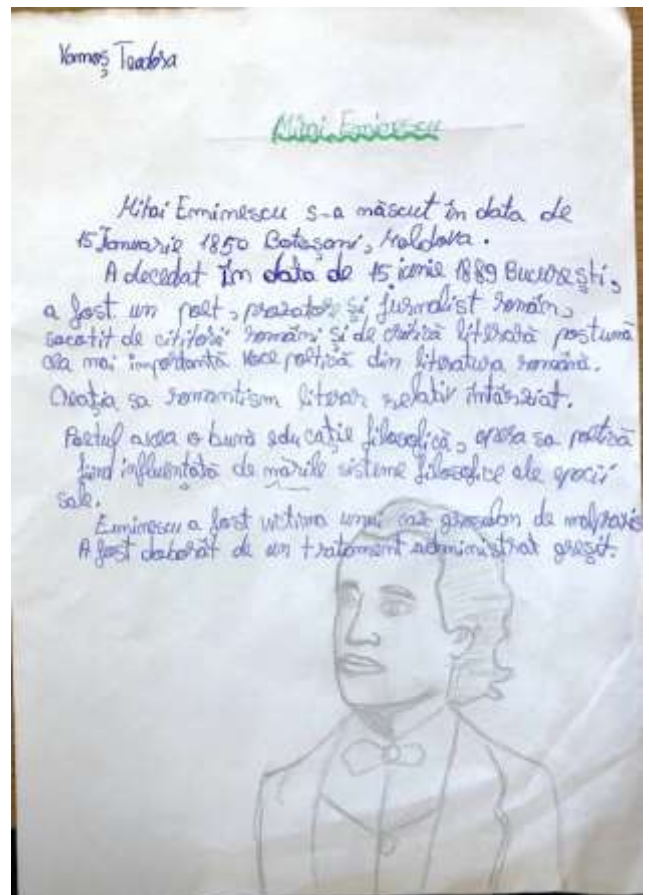 Vamoș Teodora
Mihai Eminescu
Mihai Eminescu s-a născut în data de
15 Ianuarie 1850 Botoșani, Moldova.
A decedat în data de 15 iunie 1889 București,
a fost un poet, prozator și jurnalist român,
socotit de cititorii români și de critica literară postumă
cea mai importantă voce poetică din literatura română.
Creația sa romantism literar relativ întârziat.
Poetul avea o bună educație filosofică, opera sa poetică
fiind influențată de marile sisteme filosofice ale epocii
sale.
Eminescu a fost victima unui caz de malpraxis
A fost doborât de un tratament administrat greșit.